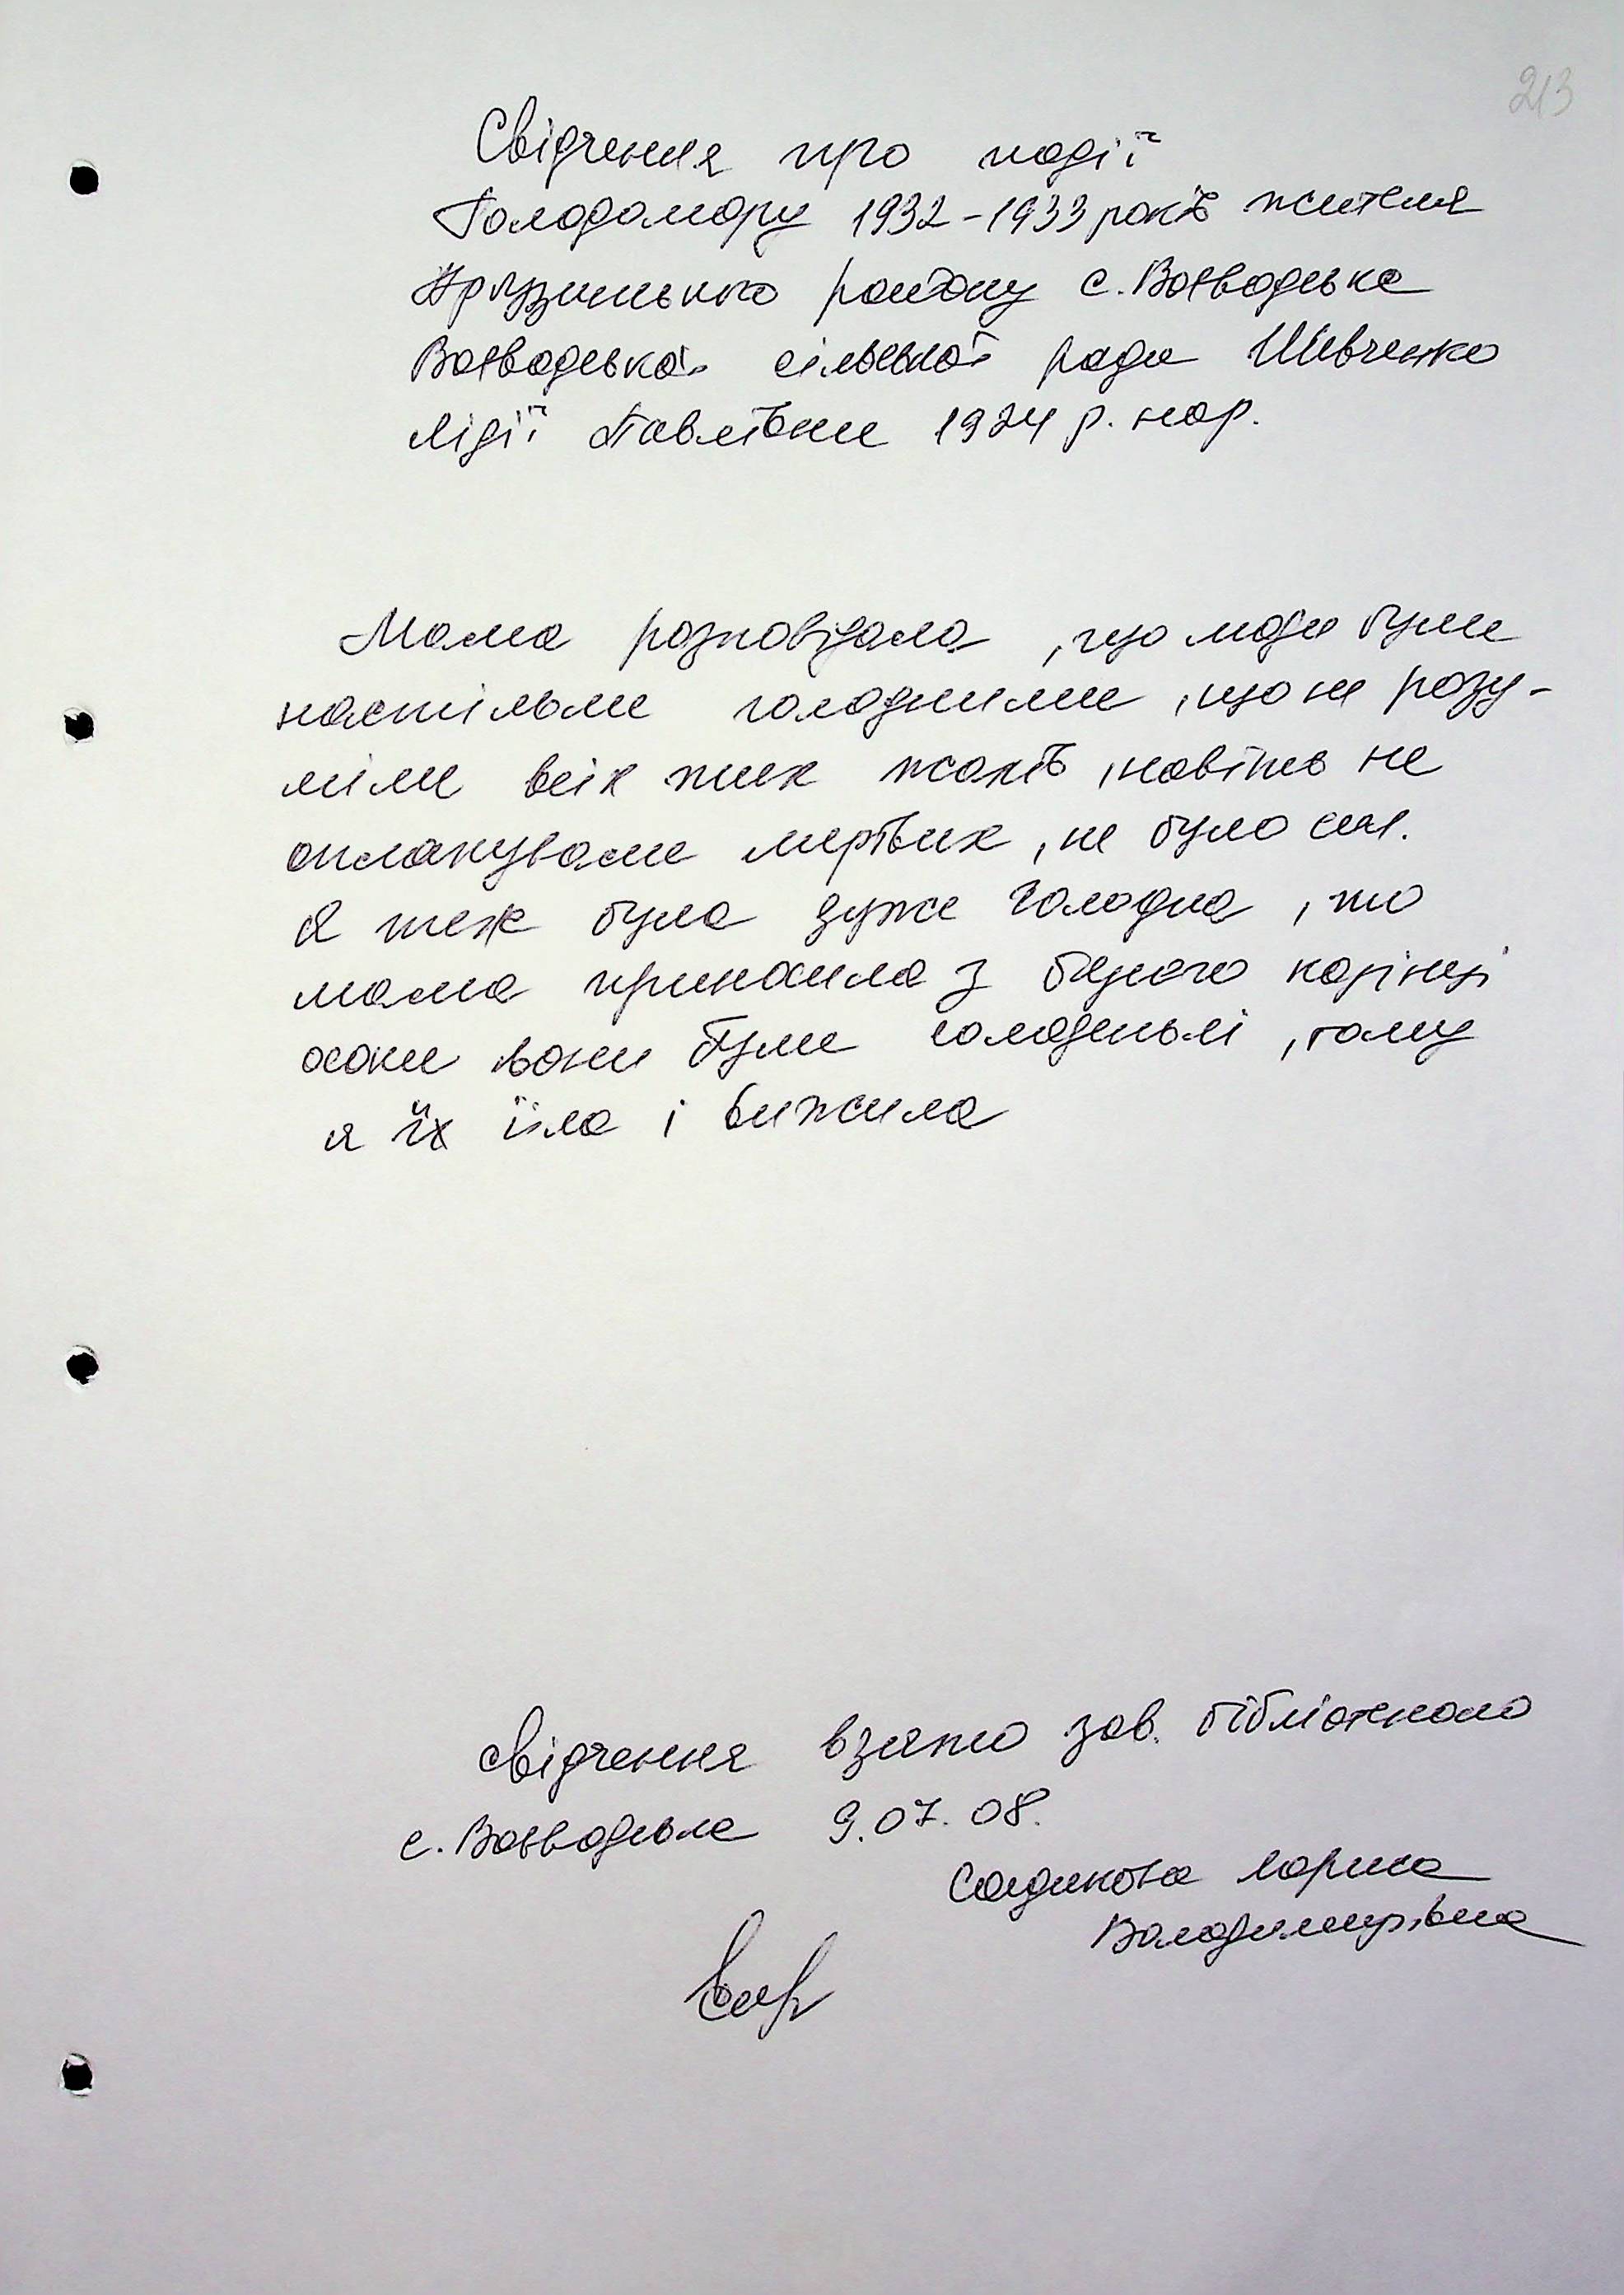 213
Свідчення про події
Голодомору 1932-1933 років жителя
Арбузинського району с. Воєводське
Воєводської сільської ради Шевченко
Лідії Павлівни 1924 р. нар.
Мама розповідала, що люди були
настільки голодними, що не розу-
міли всіх тих жахів, навіть не
оплакували мертвих, не було сил.
Я теж була дуже голодна, то
мама приносила з Бугого корінці
осоки вони були солоденькі, тому
я їх їла і вижила
свідчення взято зав. бібліотекою
с. Воєводське 9.07.08.
Садикова Лариса
Володимирівна